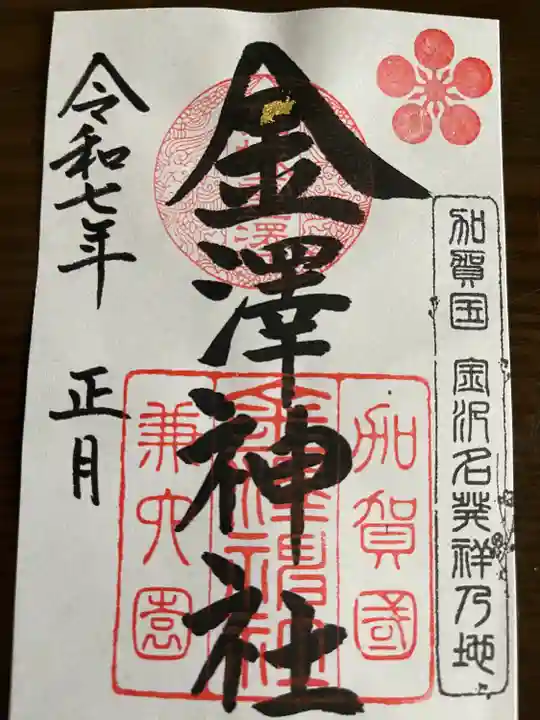 加賀国 金沢名発祥乃地
金澤神社
加賀國
金澤神社
兼六園
令和七年 正月